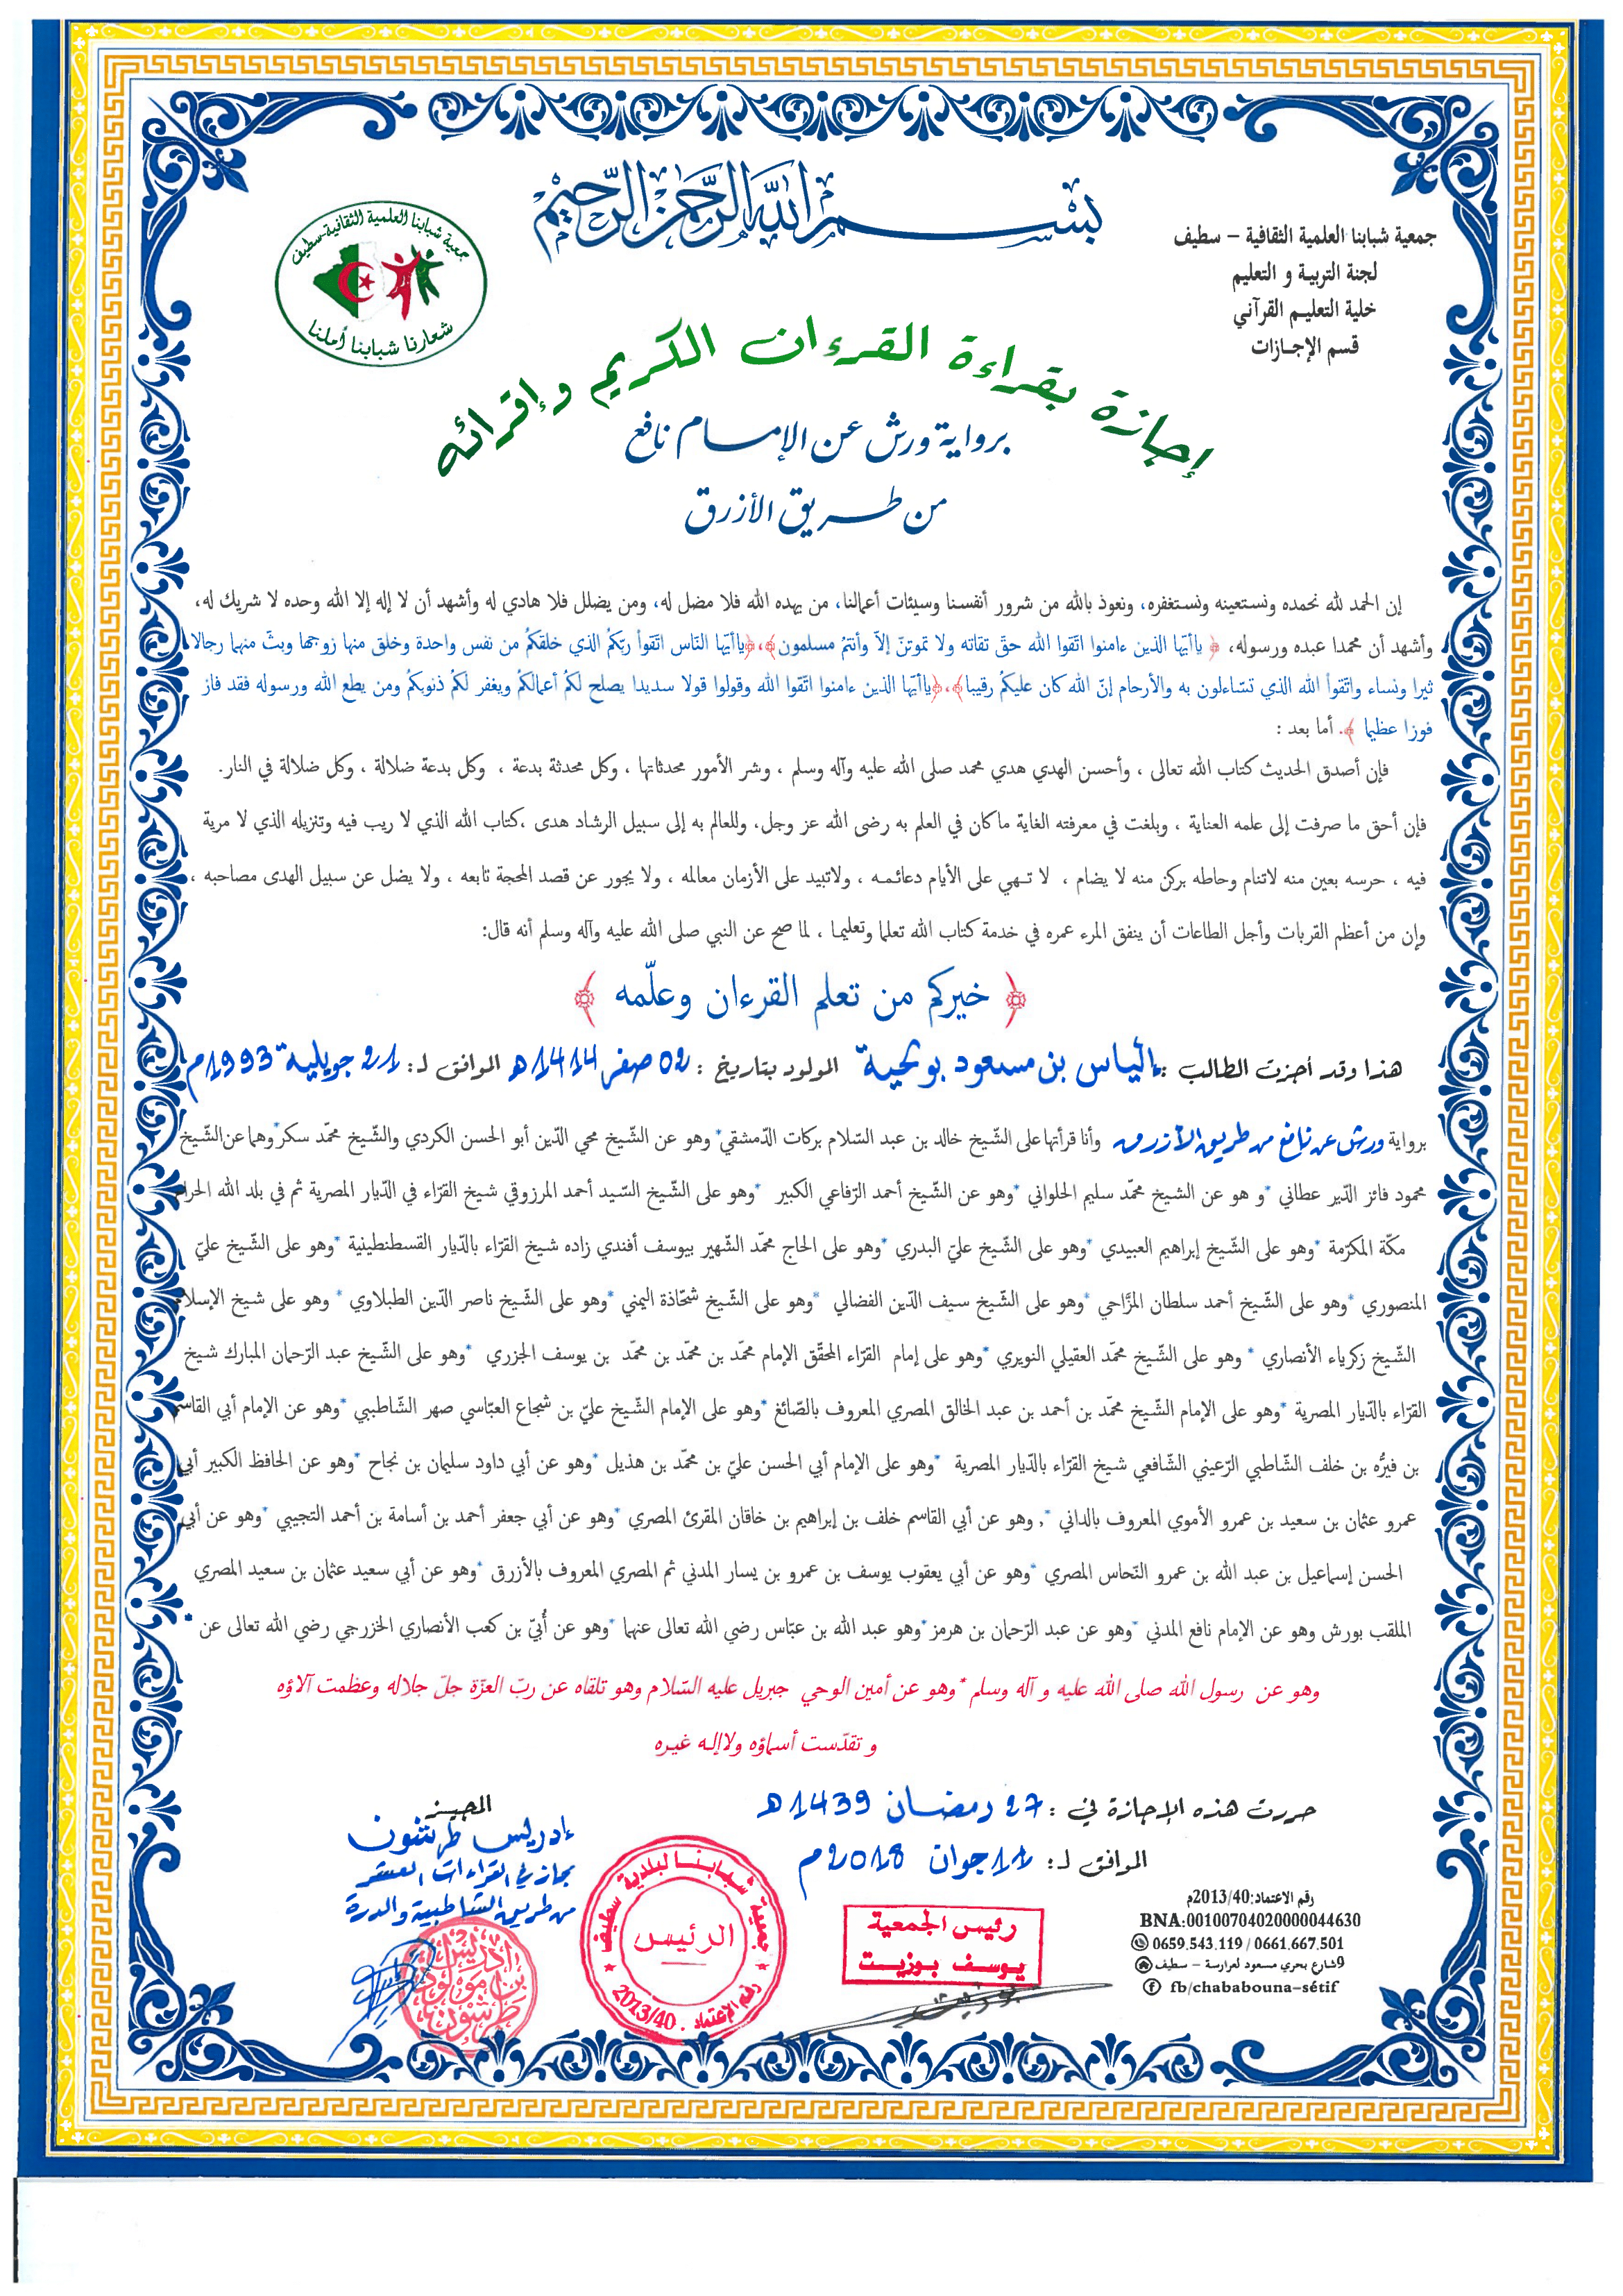 بسم الله الرحمن الرحيم
جمعية شبابنا العلمية الثقافية – سطيف
لجنة التربية و التعليم
خلية التعليم القرآني
قسم الإجازات
جمعية شبابنا العلمية الثقافية-سطيف
شعارنا شبابنا أملنا
إجازة بقراءة القرءان الكريم وإقرائه
برواية ورش عن الإمام نافع
من طريق الأزرق
إن الحمد لله نحمده ونستعينه ونستغفره، ونعوذ بالله من شرور أنفسنا وسيئات أعمالنا، من يهده الله فلا مضل له، ومن يضلل فلا هادي له وأشهد أن لا إله إلا الله وحده لا شريك له،
وأشهد أن محمدا عبده ورسوله، ﴿ ياأيّها الذين ءامنوا اتّقوا الله حقّ تقاته ولا تموتنّ إلاّ وأنتمُ مسلمون﴾،﴿ياأيّها النّاس اتّقوأ ربّكمُ الذي خلقكمُ من نفس واحدة وخلق منها زوجها وبثّ منهما رجالا
ثيرا ونساء واتّقوأ الله الذي تسّاءلون به والأرحام إنّ الله كان عليكمُ رقيبا﴾،﴿ياأيّها الذين ءامنوا اتّقوا الله وقولوا قولا سديدا يصلح لكمُ أعمالكمُ ويغفر لكمُ ذنوبكمُ ومن يطع الله ورسوله فقد فاز
فوزا عظيما ﴾. أما بعد :
فإن أصدق الحديث كتاب الله تعالى ، وأحسن الهدي هدي محمد صلى الله عليه وآله وسلم ، وشر الأمور محدثاتها ، وكل محدثة بدعة ، وكل بدعة ضلالة ، وكل ضلالة في النار.
فإن أحق ما صرفت إلى علمه العناية ، وبلغت في معرفته الغاية ماكان في العلم به رضى الله عز وجل، وللعالم به إلى سبيل الرشاد هدى ،كتاب الله الذي لا ريب فيه وتنزيله الذي لا مرية
فيه ، حرسه بعين منه لاتنام وحاطه بركن منه لا يضام ، لا تهي على الأيام دعائمه ، ولاتبيد على الأزمان معالمه ، ولا يجور عن قصد المحجة تابعه ، ولا يضل عن سبيل الهدى مصاحبه ،
وإن من أعظم القربات وأجل الطاعات أن ينفق المرء عمره في خدمة كتاب الله تعلما وتعليما ، لما صح عن النبي صلى الله عليه وآله وسلم أنه قال:
﴿ خيركم من تعلم القرءان وعلّمه ﴾
هذا وقد أجزت الطالب : إلياس بن مسعود بوكحية المولود بتاريخ : 02 صفر 1414هـ الموافق لـ: 21 جويلية 1993م
برواية ورش عن نافع من طريق الأزرق وأنا قرأتها على الشّيخ خالد بن عبد السّلام بركات الدّمشقي* وهو عن الشّيخ محي الدّين أبو الحسن الكردي والشّيخ محمّد سكر*وهما عن الشّيخ
محمود فائز الدّير عطاني *و هو عن الشيخ محمّد سليم الحلواني *وهو عن الشّيخ أحمد الرّفاعي الكبير *وهو على الشّيخ السّيد أحمد المرزوقي شيخ القرّاء في الدّيار المصرية ثم في بلد الله الحرام
مكّة المكرّمة *وهو على الشّيخ إبراهيم العبيدي *وهو على الشّيخ عليّ البدري *وهو على الحاج محمّد الشّهير بيوسف أفندي زاده شيخ القرّاء بالدّيار القسطنطينية *وهو على الشّيخ عليّ
المنصوري *وهو على الشّيخ أحمد سلطان المزّاحي *وهو على الشّيخ سيف الدّين الفضالي *وهو على الشّيخ شحّاذة اليمني *وهو على الشّيخ ناصر الدّين الطبلاوي * وهو على شيخ الإسلام
الشّيخ زكرياء الأنصاري * وهو على الشّيخ محمّد العقيلي النويري *وهو على إمام القرّاء المحقّق الإمام محمّد بن محمّد بن محمّد بن يوسف الجزري *وهو على الشّيخ عبد الرّحمان المبارك شيخ
القرّاء بالدّيار المصرية *وهو على الإمام الشّيخ محمّد بن أحمد بن عبد الخالق المصري المعروف بالصّائغ *وهو على الإمام الشّيخ عليّ بن شجاع العبّاسي صهر الشّاطبي *وهو عن الإمام أبي القاسم
بن فيرُّه بن خلف الشّاطبي الرّعيني الشّافعي شيخ القرّاء بالدّيار المصرية *وهو على الإمام أبي الحسن عليّ بن محمّد بن هذيل *وهو عن أبي داود سليمان بن نجاح *وهو عن الحافظ الكبير أبي
عمرو عثمان بن سعيد بن عمرو الأموي المعروف بالداني *, وهو عن أبي القاسم خلف بن إبراهيم بن خاقان المقرئ المصري *وهو عن أبي جعفر أحمد بن أسامة بن أحمد التجيبي *وهو عن أبي
الحسن إسماعيل بن عبد الله بن عمرو النّحاس المصري *وهو عن أبي يعقوب يوسف بن عمرو بن يسار المدني ثم المصري المعروف بالأزرق *وهو عن أبي سعيد عثمان بن سعيد المصري
الملقب بورش وهو عن الإمام نافع المدني *وهو عن عبد الرّحمان بن هرمز*وهو عبد الله بن عبّاس رضي الله تعالى عنهما *وهو عن أُبيّ بن كعب الأنصاري الخزرجي رضي الله تعالى عن *
وهو عن رسول الله صلى الله عليه و آله وسلم *وهو عن أمين الوحي جبريل عليه السّلام وهو تلقاه عن ربّ العزّة جلّ جلاله وعظمت آلاؤه
و تقدّست أسماؤه ولاإله غيره
حررت هذه الإجازة في : 27 رمضان 1439هـ
الموافق لـ: 11 جوان 2018م
المجيز
إدريس طرشون
مجاز في القراءات العشر
من طريق الشاطبية والدرة
إدريس بن مولود طرشون
جمعية شبابنا لبلدية سطيف
الرئيس
رقم الإعتماد . 2013/40
رئيس الجمعية
يوسف بوزيت
رقم الاعتماد:2013/40م
BNA:00100704020000044630
0659.543.119 / 0661.667.501
9شارع بحري مسعود لعرارسة – سطيف
fb/chababouna-sétif